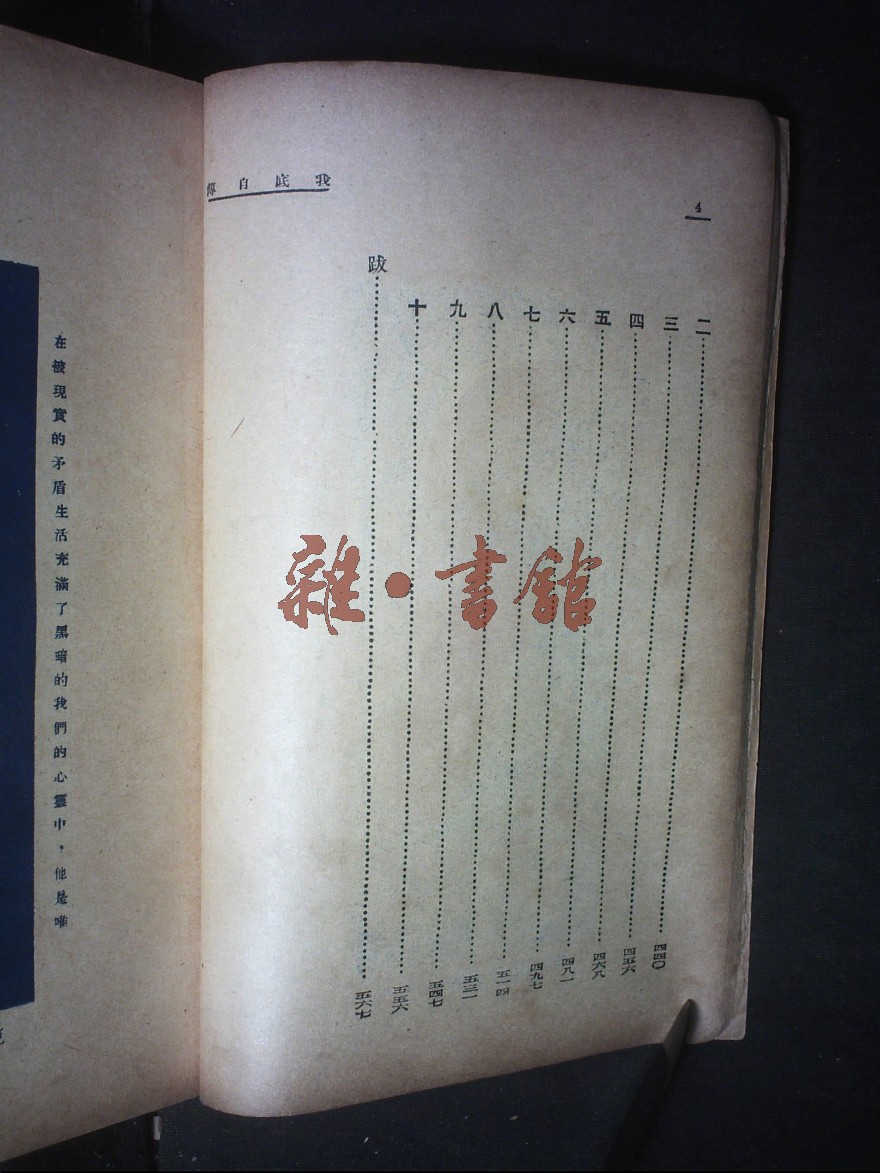 我底自傳
4
二……四四〇
三……四五六
四……四六八
五……四八一
六……四九七
七……五一四
八……五三一
九……五四七
十……五五六
跋……五六七
在被現實的矛盾生活充滿了黑暗的我們的心靈中，他是唯
雜·書館